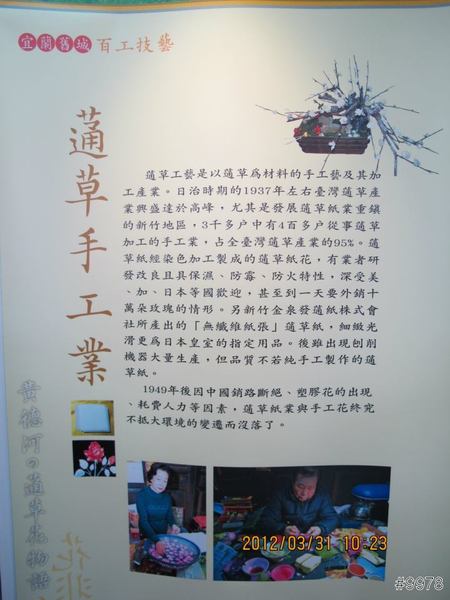 宜蘭舊城 百工技藝
蓪草手工業
蓪草工藝是以蓪草為材料的手工藝及其加
工產業。日治時期的1937年左右臺灣蓪草產
業興盛達於高峰，尤其是發展蓪草紙業重鎮
的新竹地區，3千多戶中有4百多戶從事蓪草
加工的手工業，占全臺灣蓪草產業的95%。蓪
草紙經染色加工製成的蓪草紙花，有業者研
發改良且具保濕、防霉、防火特性，深受美
、加、日本等國歡迎，甚至到一天要外銷十
萬朵玫瑰的情形。另新竹金泉發蓪紙株式會
社所產出的「無纖維紙張」蓪草紙，細緻光
滑更為日本皇室的指定用品。後雖出現刨削
機器大量生產，但品質不若純手工製作的蓪
草紙。
1949年後因中國銷路斷絕、塑膠花的出現
、耗費人力等因素，蓪草紙業與手工花終究
不抵大環境的變遷而沒落了。
黃德河の蓪草花物語
花非
2012/03/31 10:23
#9978